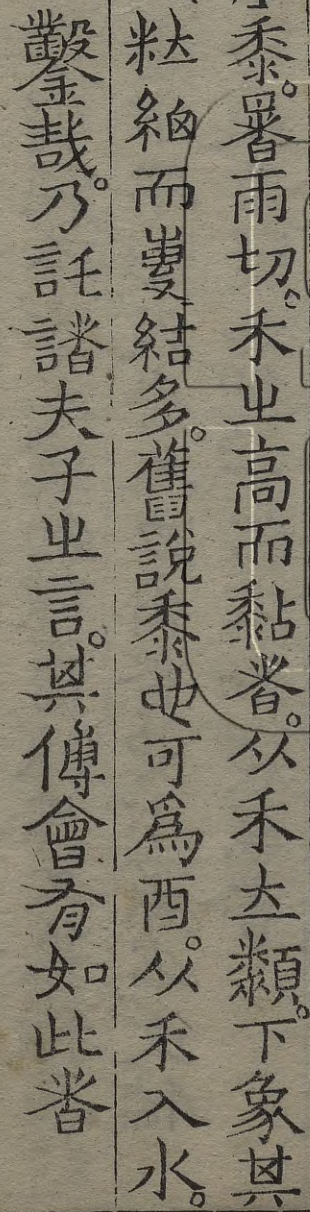 黍。暑雨切。禾㞢高而黏者。从禾大𩔖。下象其
𥹃細而叀結多。舊說黍也可爲酉。从禾入水。
鑿哉。乃託諸夫子㞢言。其傅會有如此者